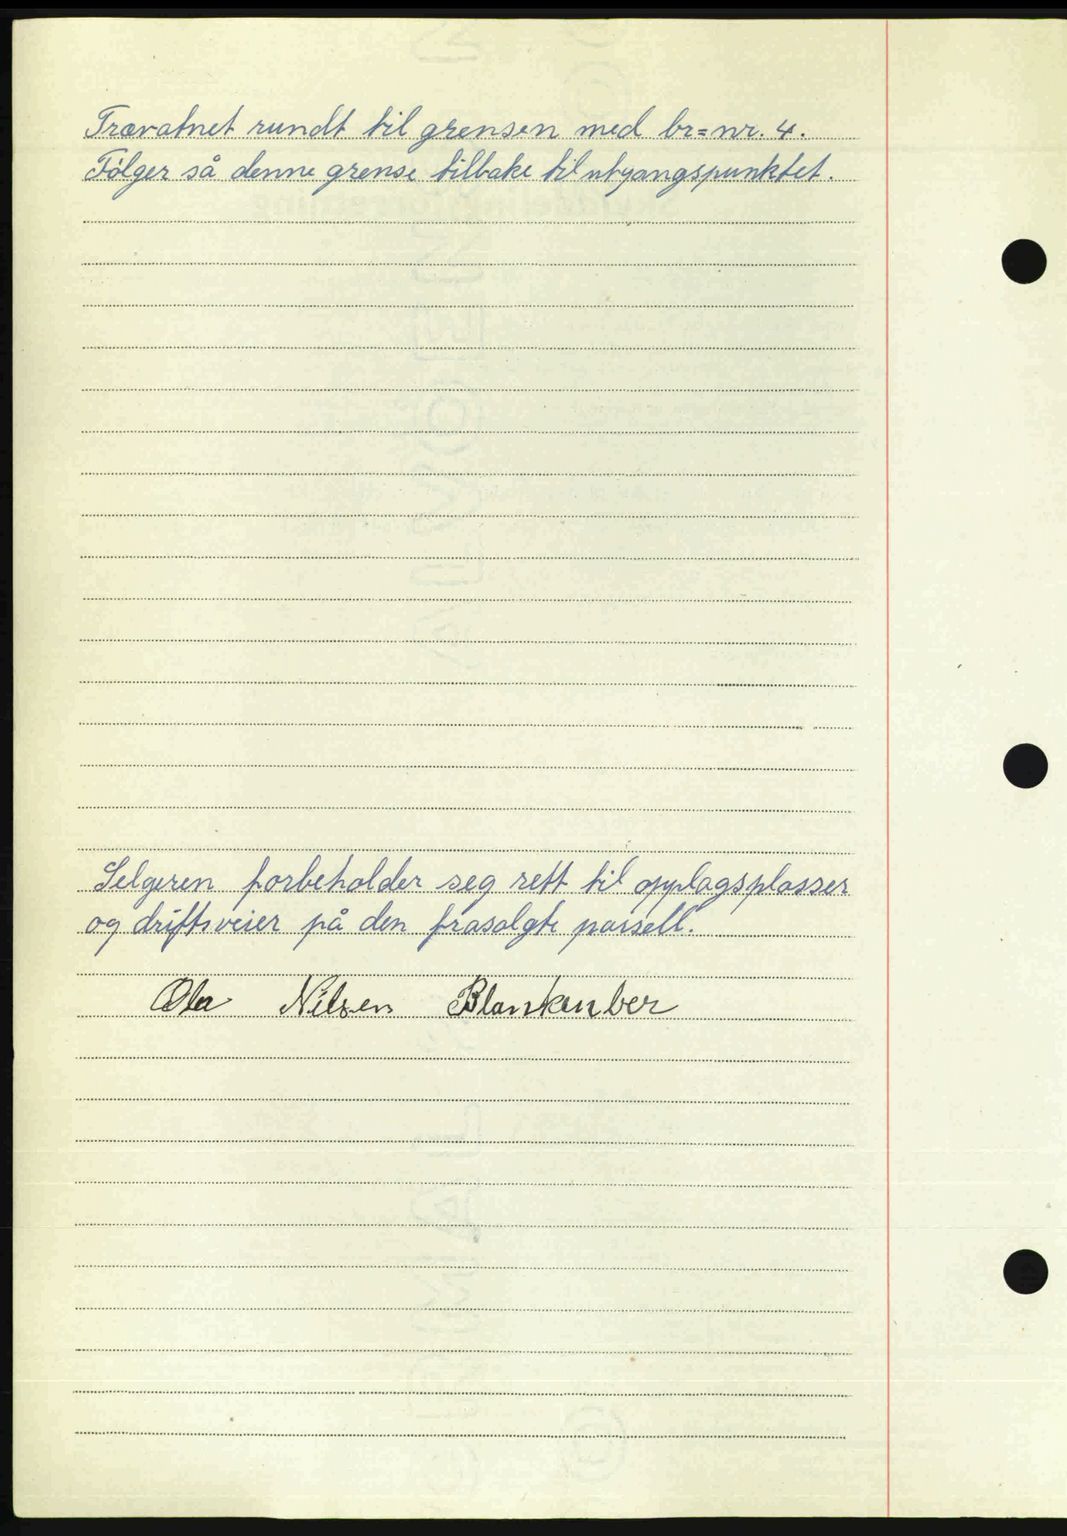 Trævatnet rundt til grensen med br=nr. 4.
Følger så denne grense tilbake til utgangspunktet.
Selgeren forbeholder seg rett til opplagsplasser
og driftsveier på den frasolgte parsell.
Ola Nilsen Blankenber